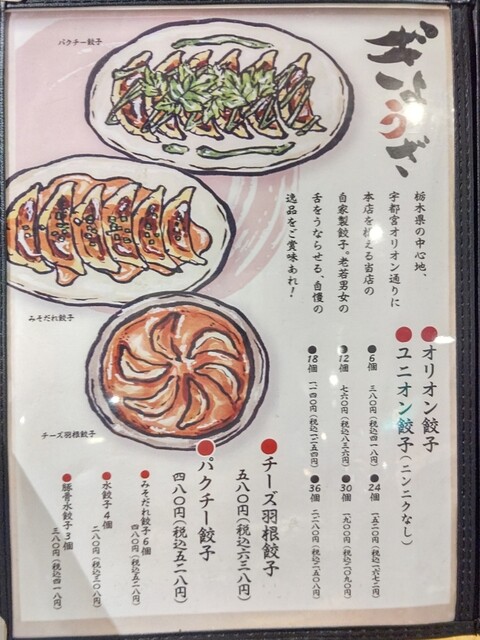 ぎょうざ
栃木県の中心地、
宇都宮オリオン通りに
本店を構える当店の
自家製餃子。老若男女の
舌をうならせる、自慢の
逸品をご賞味あれ！
パクチー餃子
みそだれ餃子
チーズ羽根餃子
●オリオン餃子
●ユニオン餃子（ニンニクなし）
●6個 三八〇円（税込四一八円）
●12個 七六〇円（税込八三六円）
●18個 一一四〇円（税込一二五四円）
●24個 一五二〇円（税込一六七二円）
●30個 一九〇〇円（税込二〇九〇円）
●36個 二二八〇円（税込二五〇八円）
●チーズ羽根餃子
五八〇円（税込六三八円）
●パクチー餃子
四八〇円（税込五二八円）
●みそだれ餃子 6個
四八〇円（税込五二八円）
●水餃子 4個
二八〇円（税込三〇八円）
●豚骨水餃子 3個
三八〇円（税込四一八円）